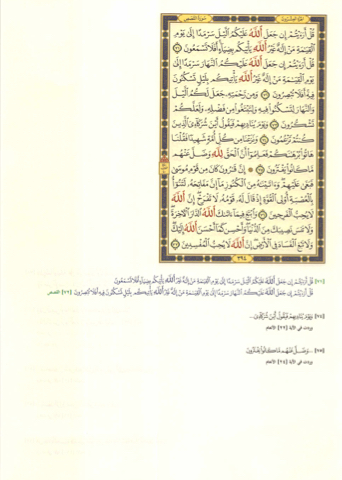 الجزء العشرون سورة القصص
قُلْ أَرَءَيْتُمْ إِن جَعَلَ ٱللَّهُ عَلَيْكُمُ ٱلَّيْلَ سَرْمَدًا إِلَىٰ يَوْمِ
ٱلْقِيَٰمَةِ مَنْ إِلَٰهٌ غَيْرُ ٱللَّهِ يَأْتِيكُم بِضِيَآءٍ أَفَلَا تَسْمَعُونَ ٧١
قُلْ أَرَءَيْتُمْ إِن جَعَلَ ٱللَّهُ عَلَيْكُمُ ٱلنَّهَارَ سَرْمَدًا إِلَىٰ
يَوْمِ ٱلْقِيَٰمَةِ مَنْ إِلَٰهٌ غَيْرُ ٱللَّهِ يَأْتِيكُم بِلَيْلٍ تَسْكُنُونَ
فِيهِ أَفَلَا تُبْصِرُونَ ٧٢ وَمِن رَّحْمَتِهِۦ جَعَلَ لَكُمُ ٱلَّيْلَ
وَٱلنَّهَارَ لِتَسْكُنُوا۟ فِيهِ وَلِتَبْتَغُوا۟ مِن فَضْلِهِۦ وَلَعَلَّكُمْ
تَشْكُرُونَ ٧٣ وَيَوْمَ يُنَادِيهِمْ فَيَقُولُ أَيْنَ شُرَكَآءِىَ ٱلَّذِينَ
كُنتُمْ تَزْعُمُونَ ٧٤ وَنَزَعْنَا مِن كُلِّ أُمَّةٍ شَهِيدًا فَقُلْنَا
هَاتُوا۟ بُرْهَٰنَكُمْ فَعَلِمُوٓا۟ أَنَّ ٱلْحَقَّ لِلَّهِ وَضَلَّ عَنْهُم
مَّا كَانُوا۟ يَفْتَرُونَ ٧٥ إِنَّ قَٰرُونَ كَانَ مِن قَوْمِ مُوسَىٰ
فَبَغَىٰ عَلَيْهِمْ وَءَاتَيْنَٰهُ مِنَ ٱلْكُنُوزِ مَآ إِنَّ مَفَاتِحَهُۥ لَتَنُوٓأُ
بِٱلْعُصْبَةِ أُو۟لِى ٱلْقُوَّةِ إِذْ قَالَ لَهُۥ قَوْمُهُۥ لَا تَفْرَحْ إِنَّ ٱللَّهَ
لَا يُحِبُّ ٱلْفَرِحِينَ ٧٦ وَٱبْتَغِ فِيمَآ ءَاتَىٰكَ ٱللَّهُ ٱلدَّارَ ٱلْءَاخِرَةَ
وَلَا تَنسَ نَصِيبَكَ مِنَ ٱلدُّنْيَا وَأَحْسِن كَمَآ أَحْسَنَ ٱللَّهُ إِلَيْكَ
وَلَا تَبْغِ ٱلْفَسَادَ فِى ٱلْأَرْضِ إِنَّ ٱللَّهَ لَا يُحِبُّ ٱلْمُفْسِدِينَ ٧٧
٣٩٤
[٧١] قُلْ أَرَءَيْتُمْ إِن جَعَلَ ٱللَّهُ عَلَيْكُمُ ٱلَّيْلَ سَرْمَدًا إِلَىٰ يَوْمِ ٱلْقِيَٰمَةِ مَنْ إِلَٰهٌ غَيْرُ ٱللَّهِ يَأْتِيكُم بِضِيَآءٍ أَفَلَا تَسْمَعُونَ
قُلْ أَرَءَيْتُمْ إِن جَعَلَ ٱللَّهُ عَلَيْكُمُ ٱلنَّهَارَ سَرْمَدًا إِلَىٰ يَوْمِ ٱلْقِيَٰمَةِ مَنْ إِلَٰهٌ غَيْرُ ٱللَّهِ يَأْتِيكُم بِلَيْلٍ تَسْكُنُونَ فِيهِ أَفَلَا تُبْصِرُونَ [٧٢] القصص
[٧٤] وَيَوْمَ يُنَادِيهِمْ فَيَقُولُ أَيْنَ شُرَكَآءِىَ...
وردت في الآية [٢٢] الأنعام
[٧٥] ...وَضَلَّ عَنْهُم مَّا كَانُوا۟ يَفْتَرُونَ
وردت في الآية [٢٤] الأنعام